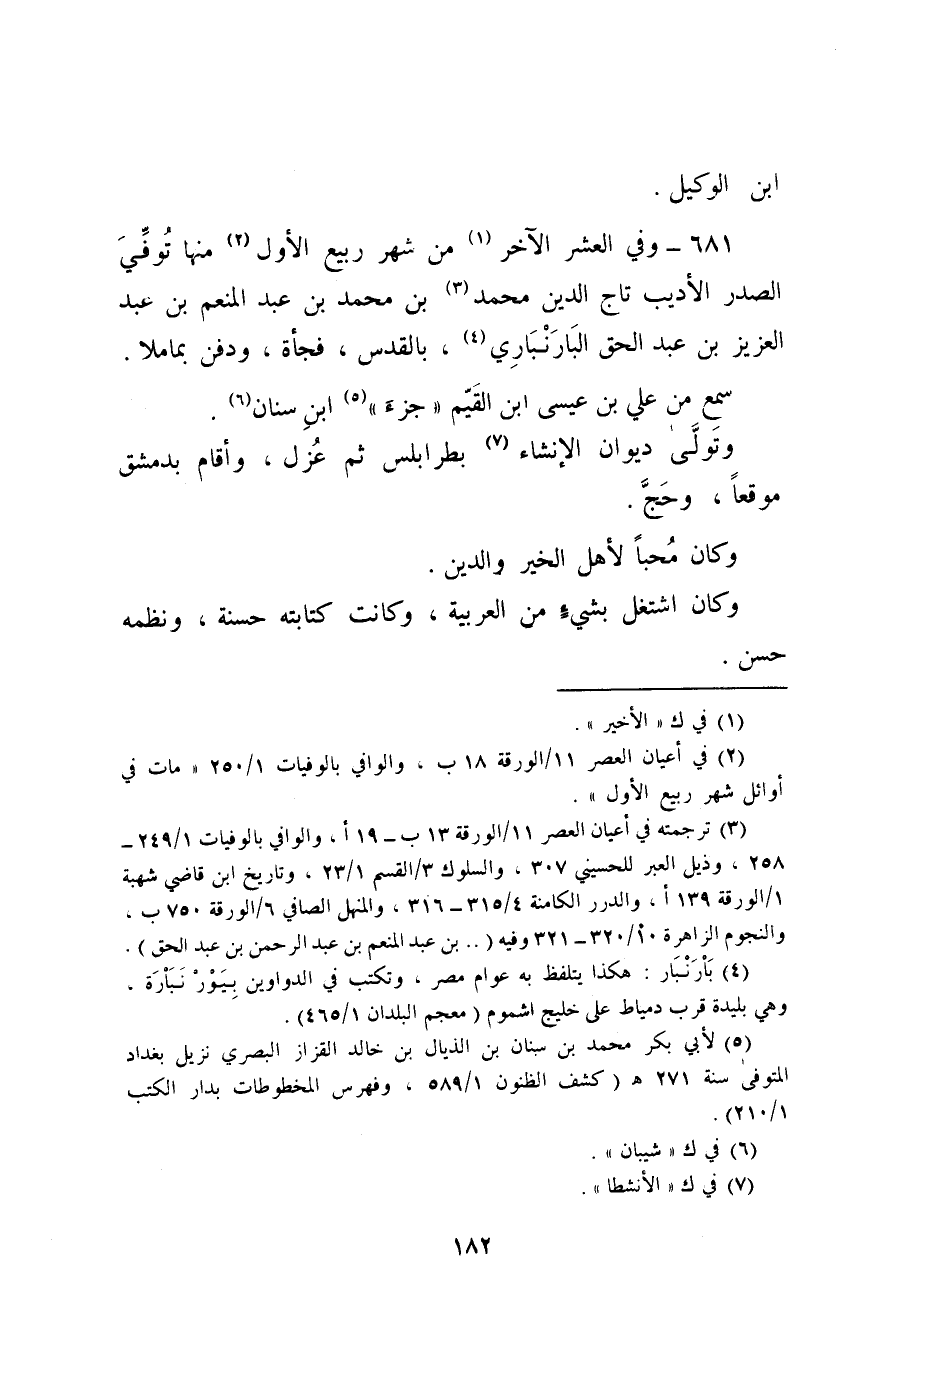 ابن الوكيل .
٦٨١ ـ وفي العشر الآخر (١) من شهر ربيع الأول (٢) منها تُوفِّيَ
الصدر الأديب تاج الدين محمد (٣) بن محمد بن عبد المنعم بن عبد
العزيز بن عبد الحق البَارَنْبَارِي (٤) ، بالقدس ، فجأة ، ودفن بماملا .
سمع من علي بن عيسى ابن القَيِّم « جزء » (٥) ابنِ سنان (٦) .
وتَولَّىٰ ديوان الإنشاء (٧) بطرابلس ثم عُزل ، وأقام بدمشق
موقعاً ، وحَجَّ .
وكان مُحباً لأهل الخير والدين .
وكان اشتغل بشيءٍ من العربية ، وكانت كتابته حسنة ، ونظمه
حسن .
(١) في ك « الأخير » .
(٢) في أعيان العصر ١١/الورقة ١٨ ب ، والوافي بالوفيات ٢٥٠/١ « مات في
أوائل شهر ربيع الأول » .
(٣) ترجمته في أعيان العصر ١١/الورقة ١٣ ب ـ ١٩ أ ، والوافي بالوفيات ٢٤٩/١ ـ
٢٥٨ ، وذيل العبر للحسيني ٣٠٧ ، والسلوك ٣/القسم ٢٣/١ ، وتاريخ ابن قاضي شهبة
١/الورقة ١٣٩ أ ، والدرر الكامنة ٣١٥/٤ ـ ٣١٦ ، والمنهل الصافي ٦/الورقة ٧٥٠ ب ،
والنجوم الزاهرة ٣٢٠/١٠ ـ ٣٢١ وفيه ( .. بن عبد المنعم بن عبد الرحمن بن عبد الحق ) .
(٤) بَاْرَنْبَار : هكذا يتلفظ به عوام مصر ، وتكتب في الدواوين بِيَوْرْ نَبَارَة .
وهي بليدة قرب دمياط على خليج اشموم ( معجم البلدان ٤٦٥/١) .
(٥) لأبي بكر محمد بن سنان بن الذيال بن خالد القزاز البصري نزيل بغداد
المتوفىٰ سنة ٢٧١ هـ ( كشف الظنون ٥٨٩/١ ، وفهرس المخطوطات بدار الكتب
٢١٠/١) .
(٦) في ك « شيبان » .
(٧) في ك « الأنشطا » .
١٨٢